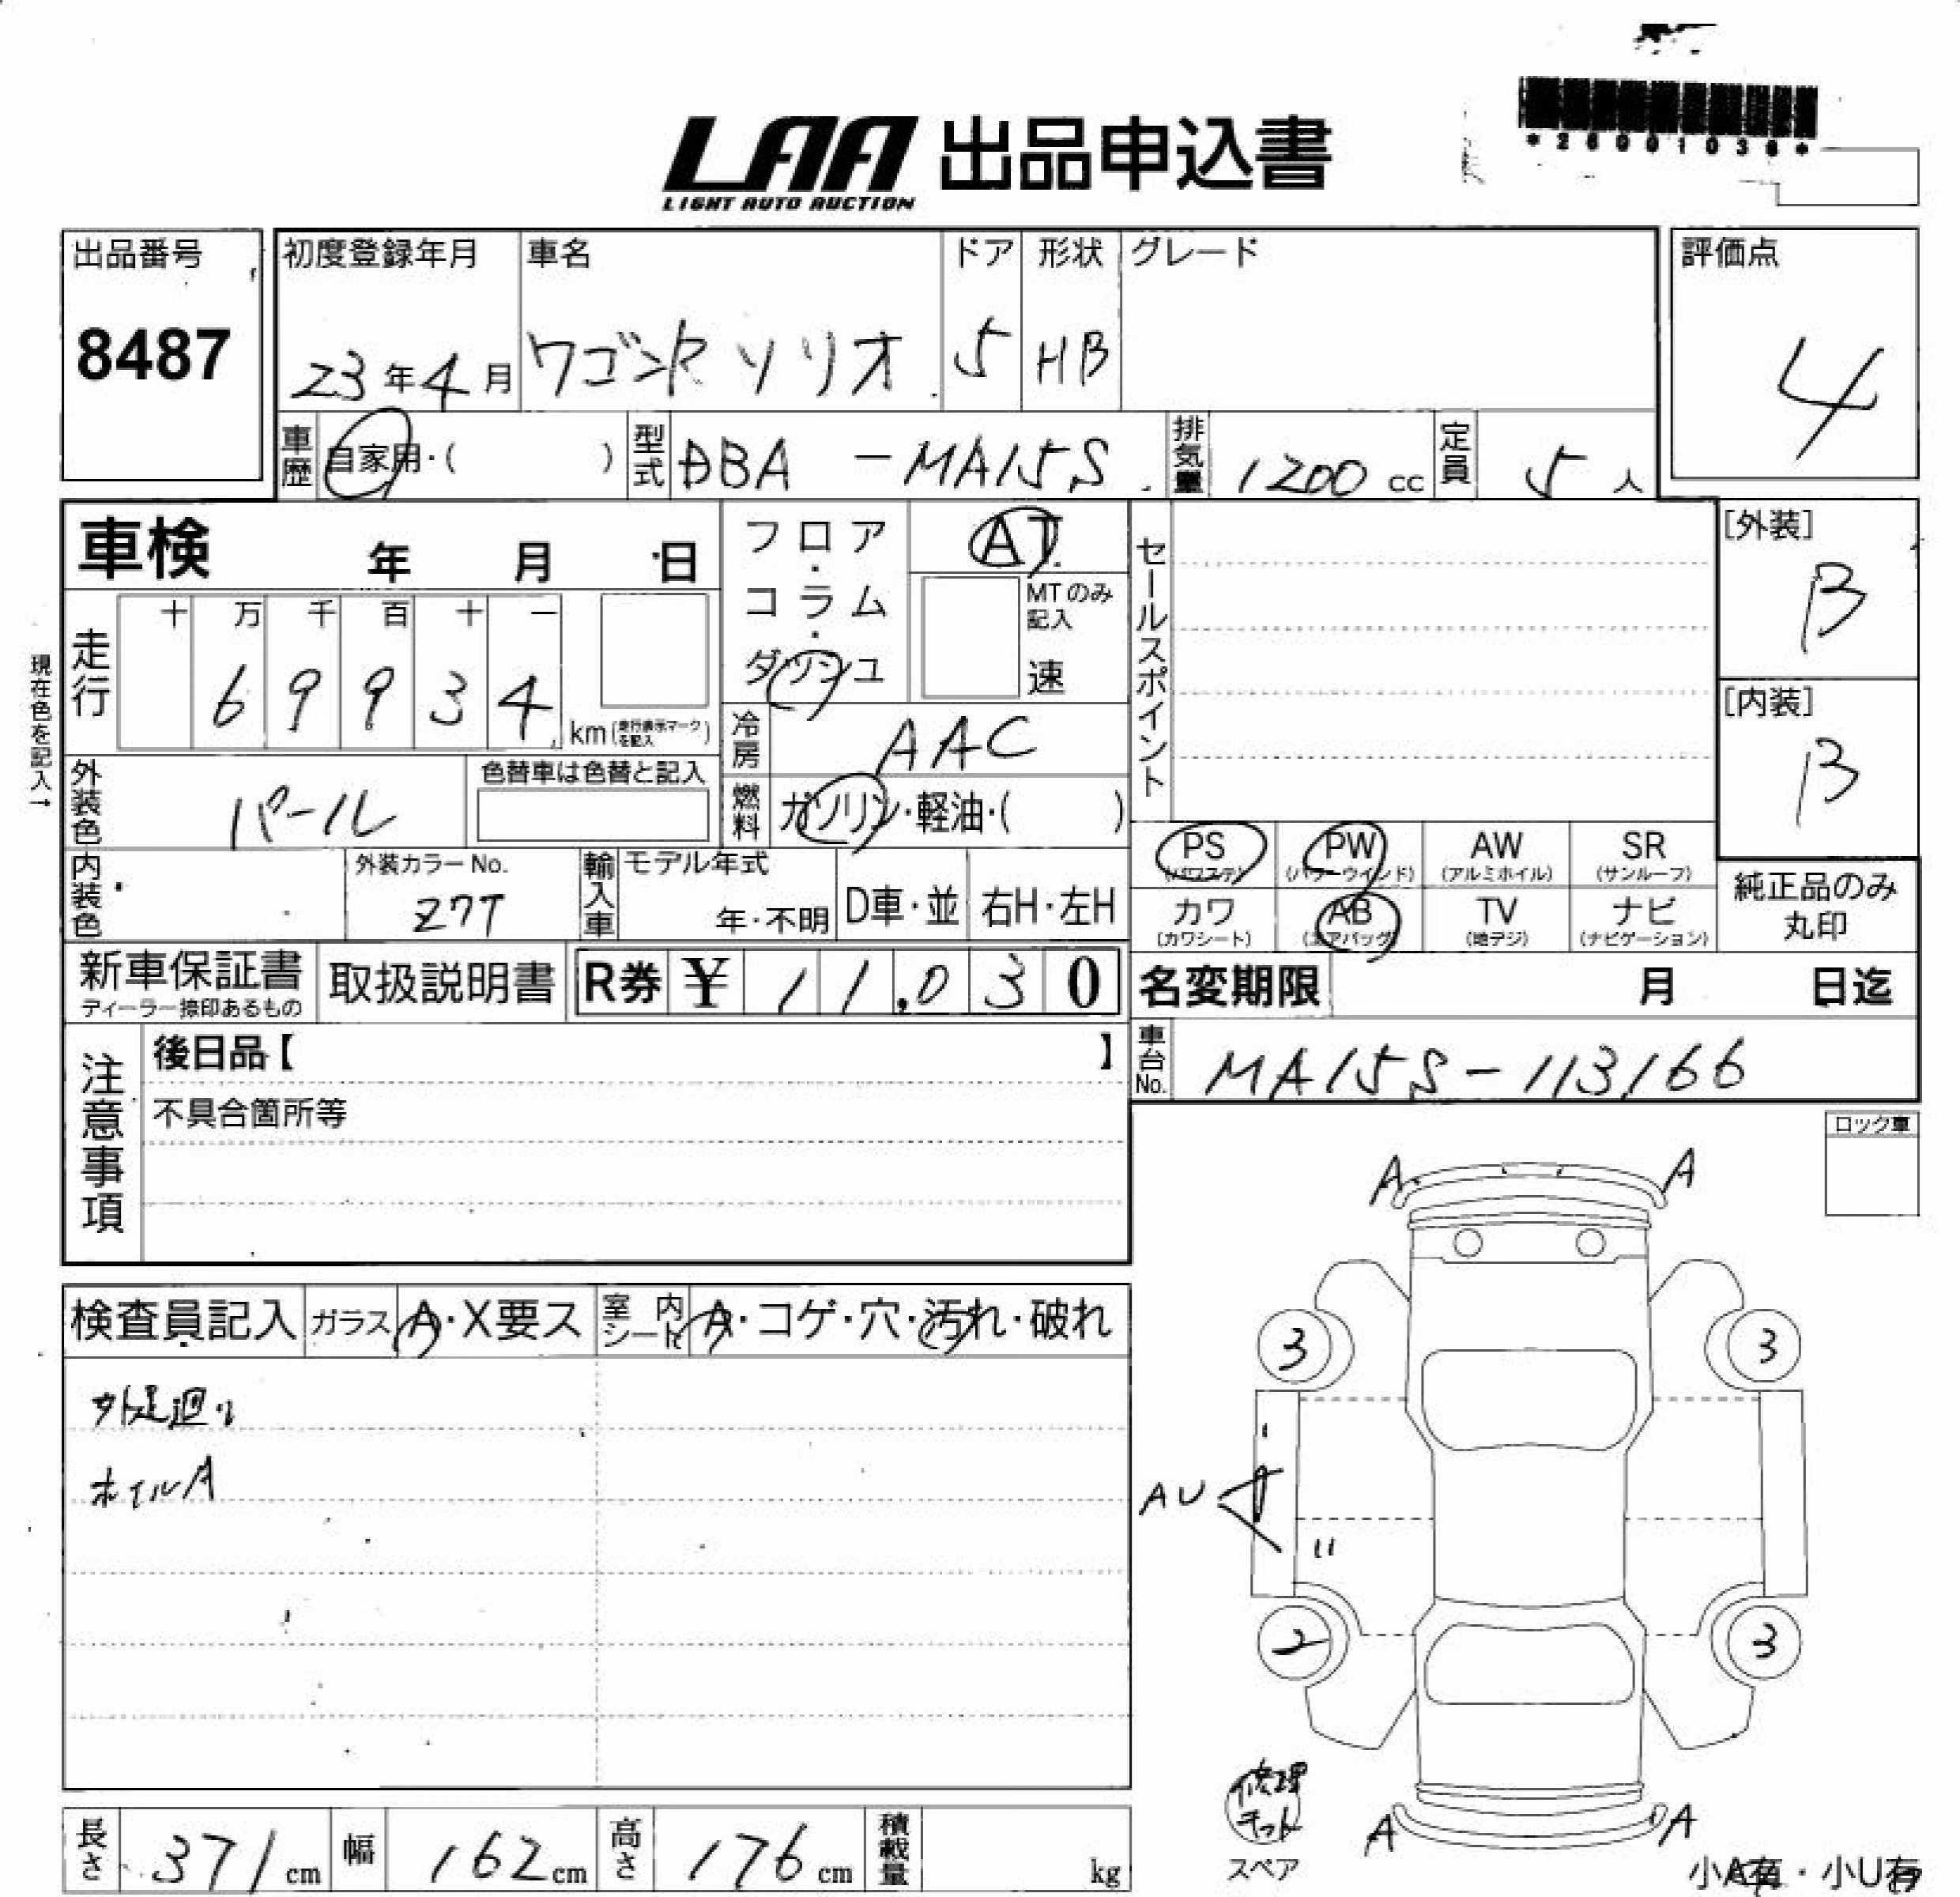 *26001036*
LAA 出品申込書
LIGHT AUTO AUCTION
出品番号 初度登録年月 車名 ドア 形状 グレード 評価点
8487 23年4月 ワゴンR ソリオ 5 HB 4
車歴 自家用・( ) 型式 DBA -MA15S 排気量 1200 cc 定員 5 人
車検 年 月 日 フロア・コラム・ダッシュ AT セールスポイント [外装]
MTのみ記入 B
速
走行 十 万 千 百 十 一
6 9 9 3 4 km(走行表示マークを記入) [内装]
現在色を記入→ 冷房 AAC B
外装色 パール 色替車は色替と記入 燃料 ガソリン・軽油・( )
PS PW AW SR
(パワステ) (パワーウインド) (アルミホイル) (サンルーフ)
内装色 外装カラーNo. Z7T 輸入車 モデル年式 年・不明 D車・並 右H・左H
カワ AB TV ナビ 純正品のみ
(カワシート) (エアバッグ) (地デジ) (ナビゲーション) 丸印
新車保証書 取扱説明書 R券 ¥ 1 1,0 3 0 名変期限 月 日迄
ディーラー捺印あるもの
車台No. MA15S-113166
注意事項 後日品【 】
不具合箇所等
ロック車
A A
検査員記入 ガラス A・X要ス 室内シート A・コゲ・穴・汚れ・破れ
3 3
外足廻り
ホイルA
AU
〃
2 3
修理
キット
スペア
A A
長さ 371cm 幅 162cm 高さ 176cm 積載量 kg
小A有・小U有